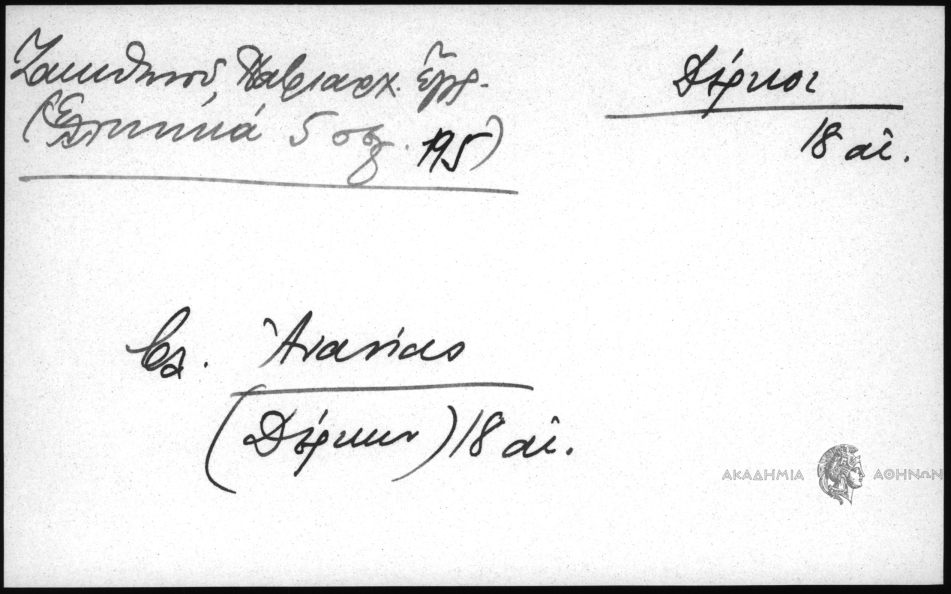 Ζακυθηνοῦ, Πατριαρχ. ἔγγρ.
(Ἑλληνικά 5 σελ. 195)
Δέρκοι
18 αἰ.
βλ. Ἀνανίας
(Δέρκων) 18 αἰ.
ΑΚΑΔΗΜΙΑ ΑΘΗΝΩΝ